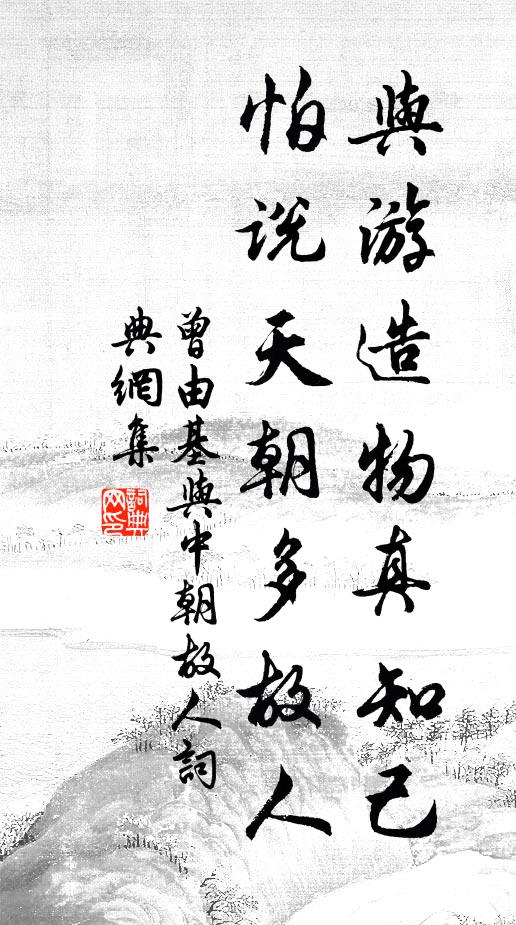 與游造物真知己
怕说天朝多故人
曾由基與中朝故人詞
典網集
詞典網印